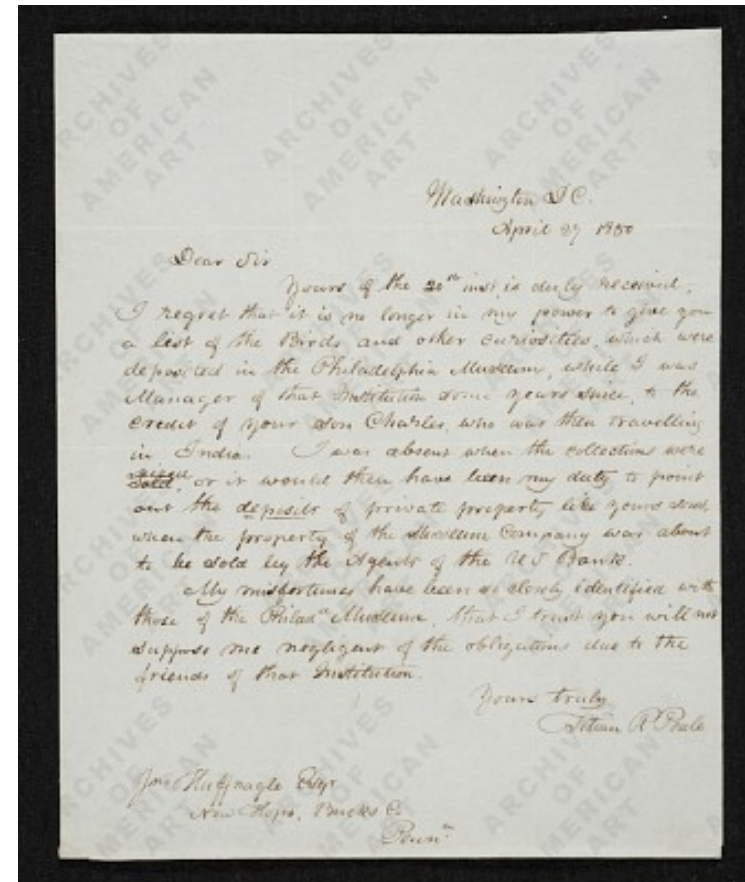 Washington D C.
April 27 1850
Dear Sir
Yours of the 20th inst, is duly received,
I regret that it is no longer in my power to give you
a list of the Birds and other curiosities, which were
deposited in the Philadelphia Museum, while I was
Manager of that Institution some years since, to the
credit of your son Charles, who was then travelling
in India. I was absent when the collections were
sold, or it would then have been my duty to point
out the deposits of private property like yours sons,
when the property of the Museum Company was about
to be sold by the Agents of the US Bank.
My misfortunes have been so closely identified with
those of the Philada Museum, that I trust you will not
suppose me negligent of the obligations due to the
friends of that Institution.
Yours truly
Titian R Peale
Huffnagle Esqr
New Hope, Bucks Co
Penna
ARCHIVES OF AMERICAN ART